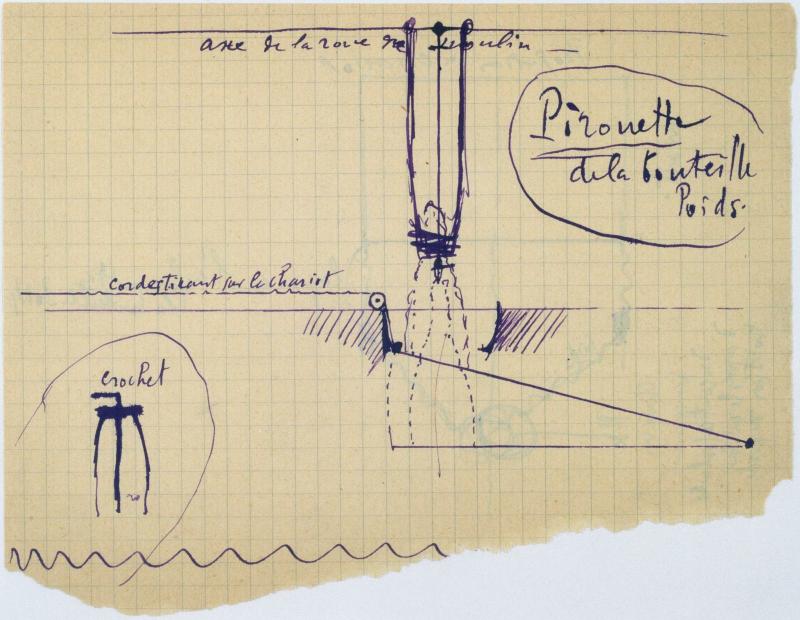 axe de la roue du moulin
Pirouette
de la bouteille
Poids.
corde tirant sur le chariot
crochet